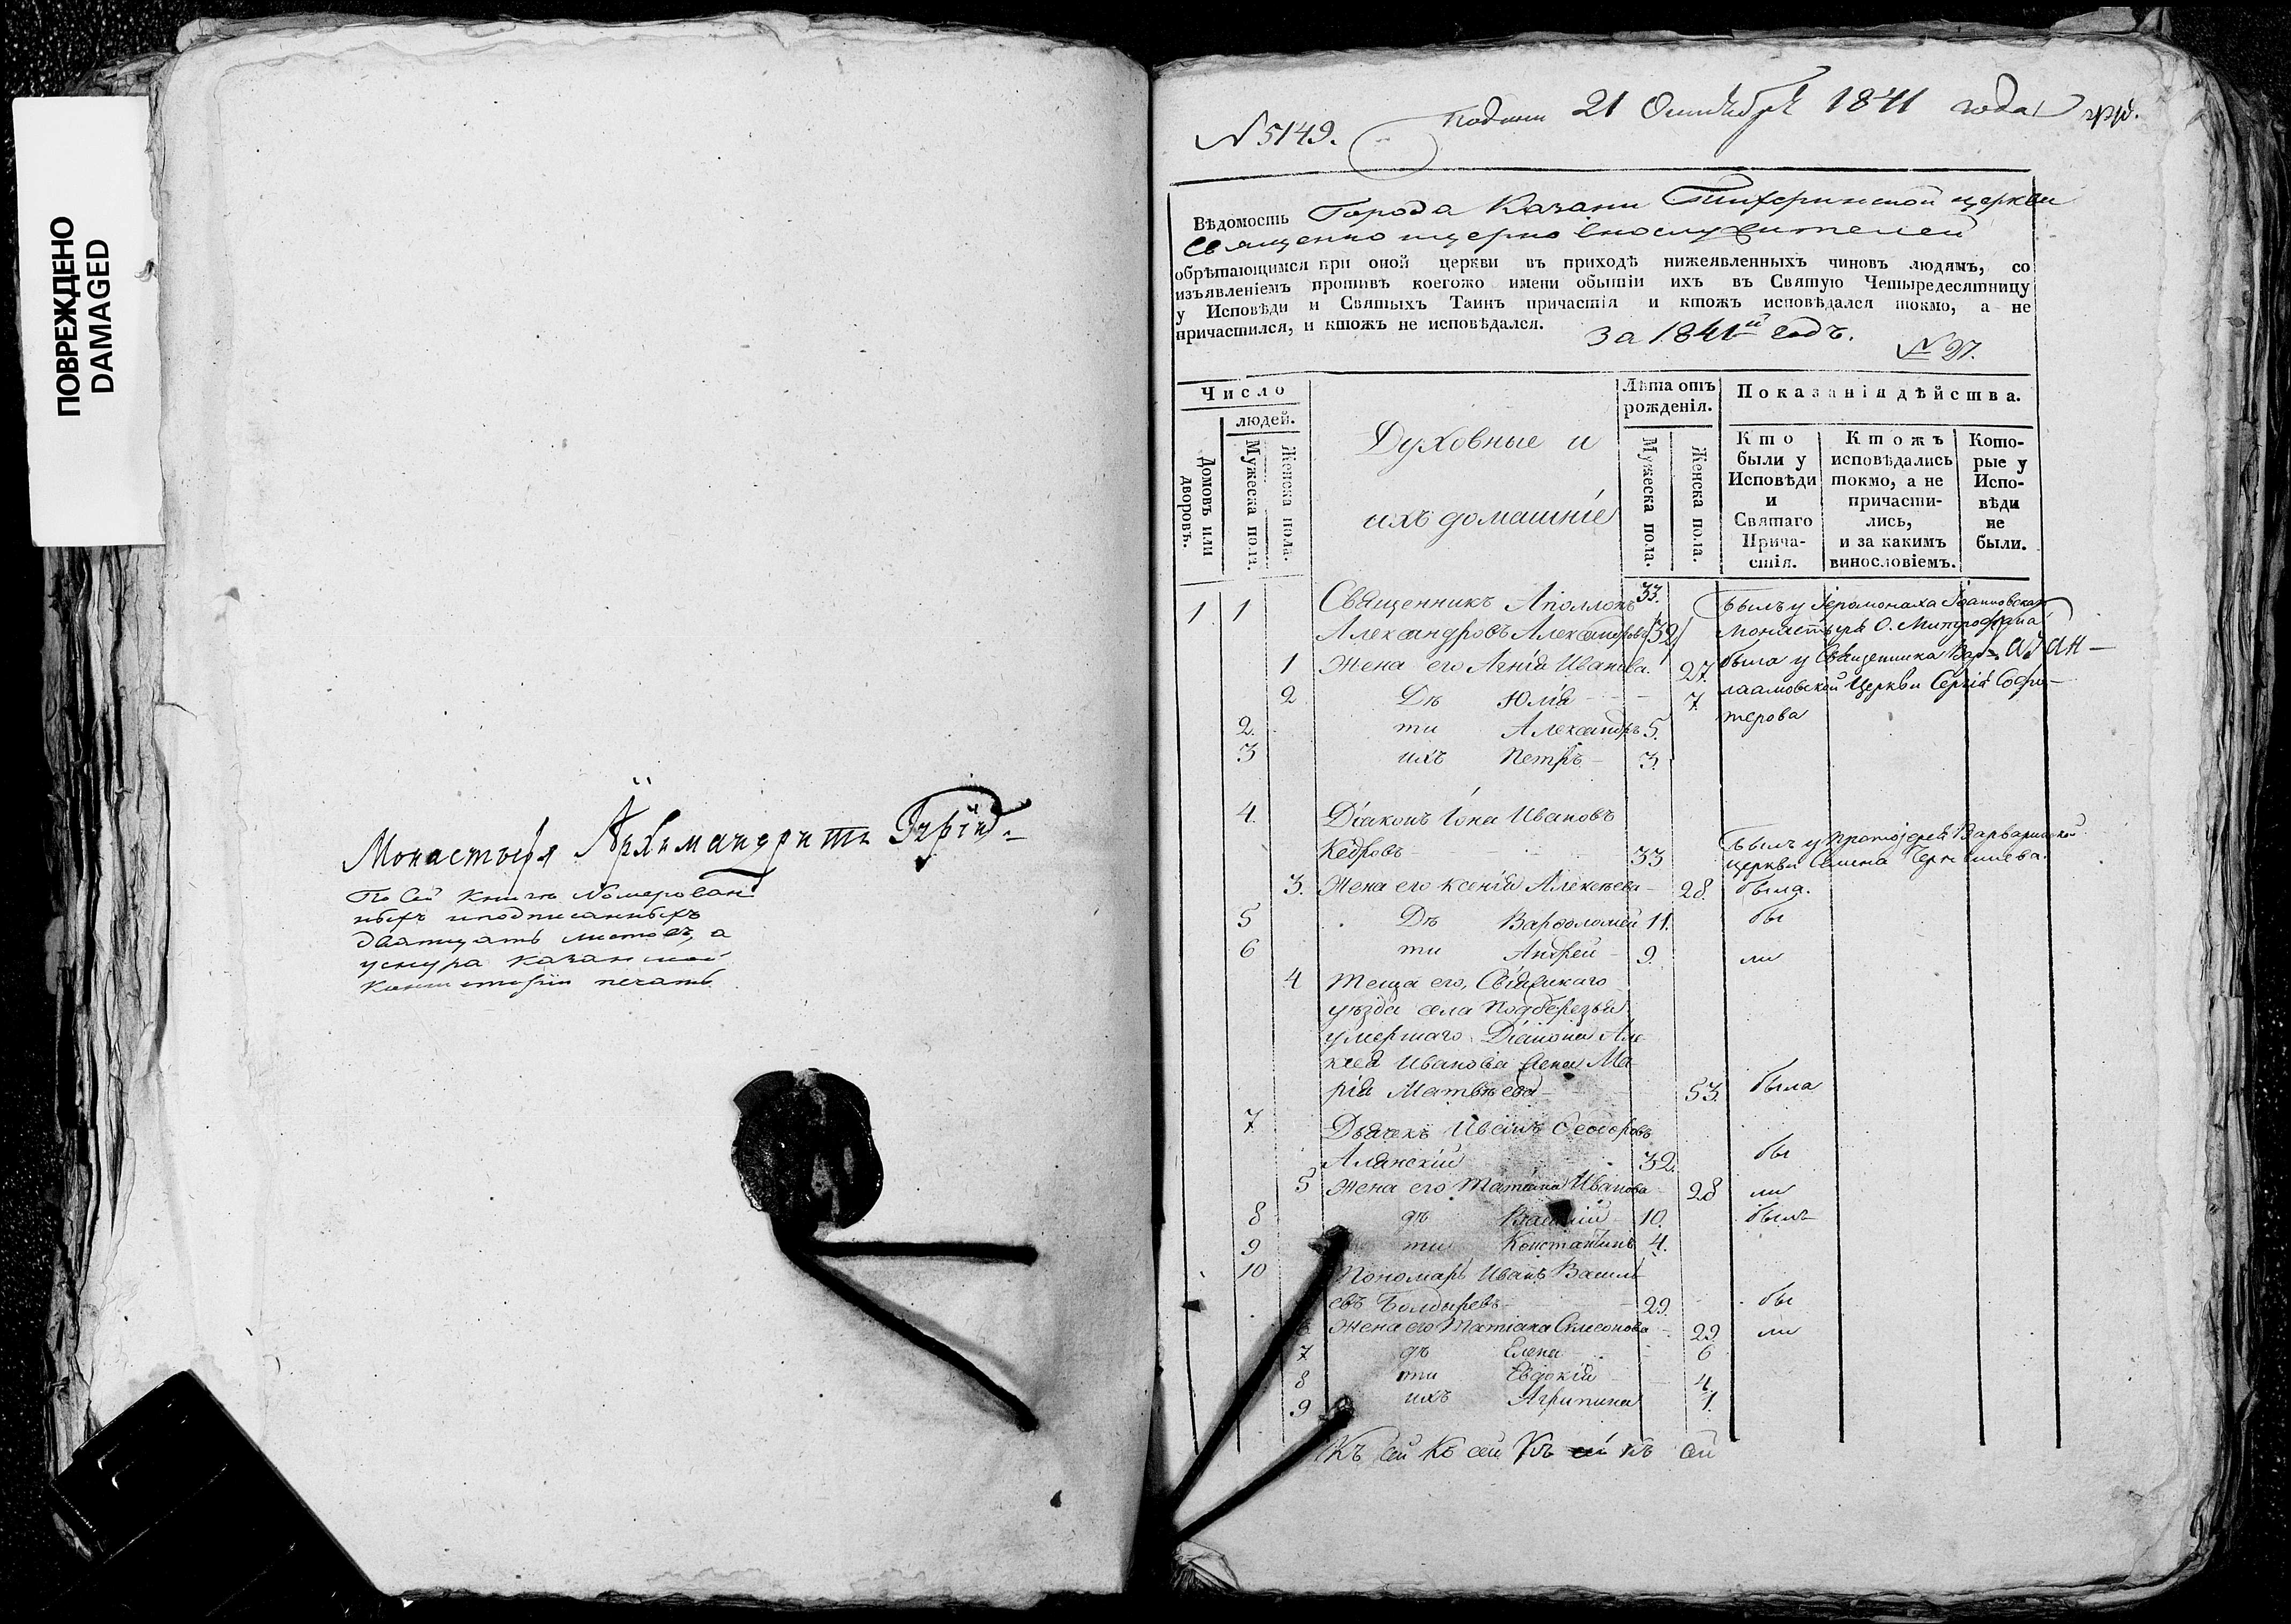 ПОВРЕЖДЕНО
DAMAGED
Монастыря Архимандритъ
По сей книгѣ номерован
ныхъ иподписанныхъ
дватцать листовъ, а
уснура казанской
консисторiи печать
N 5149.
21 Октября 1841 года
Вѣдомость Города Казани Тихвинской церкви
священно ицерковнослужителей
обрѣтающимся при оной церкви въ приходѣ нижеявленныхъ чиновъ людямъ, со
изъявленiемъ противъ коегожо имени обытiи ихъ въ Святую Четыредесятницу
у Исповѣди и Святыхъ Таинъ причастiя и ктожъ исповѣдался токмо, а не
причастился, и ктожъ не исповѣдался. За 1841й годъ.
N 97.
Число
людей.
Домовъ или дворовъ.
Мужеска пола.
Женска пола.
Духовные и
ихъ домашнiе
Лѣта отъ
рожденiя.
Мужеска пола.
Женска пола.
Показанiя дѣйства.
Кто были у Исповѣди и Святаго Прича- стiя.
Ктожъ исповѣдались токмо, а не причасти- лись, и за какимъ винословiемъ.
Кото- рые у Испо- вѣди не были.
1 1 Священникъ Аполлонъ 33. Былъ у Iеромонаха Iоанновскаго
Александровъ Александровъ 32 Монастыря О. Митрофана
1 Жена его Агнiя Иванова. 27. была у Священника Вар-
2 Дѣ Юлiя 7. лаамовской Церкви Сергiя
2. ти Александръ 5. терова
3 ихъ Петръ 3.
4. Дiаконъ Iона Ивановъ
Кедровъ 33 Былъ у Протоiерея Варваринской
церкви Семена
3. Жена его Ксенiя Алексѣева 28. была.
5 Дѣ Варфоломей 11. бы
6 ти Андрей 9. ли
4 Теща его, Свiяжскаго
уѣзда села Подберезья
умершаго Дiакона Але
ксѣя Иванова жена Ма
рiя Матвѣева 53. была
7. Дьячекъ Иванъ Ѳеодоровъ
Аланскiй 32. бы
5 Жена его Татiана Иванова 28 ли
8 дѣ Василiй 10. былъ
9 ти Константинъ 4.
10 Пономарь Иванъ Василь
евъ Болдыревъ 29. бы
6. Жена его Татiана Симеонова 29 ли
7 дѣ Елена 6
8 ти Евдокiя 4
9 ихъ Агрипина 1.
Къ сей Къ сей Къ сей къ сей